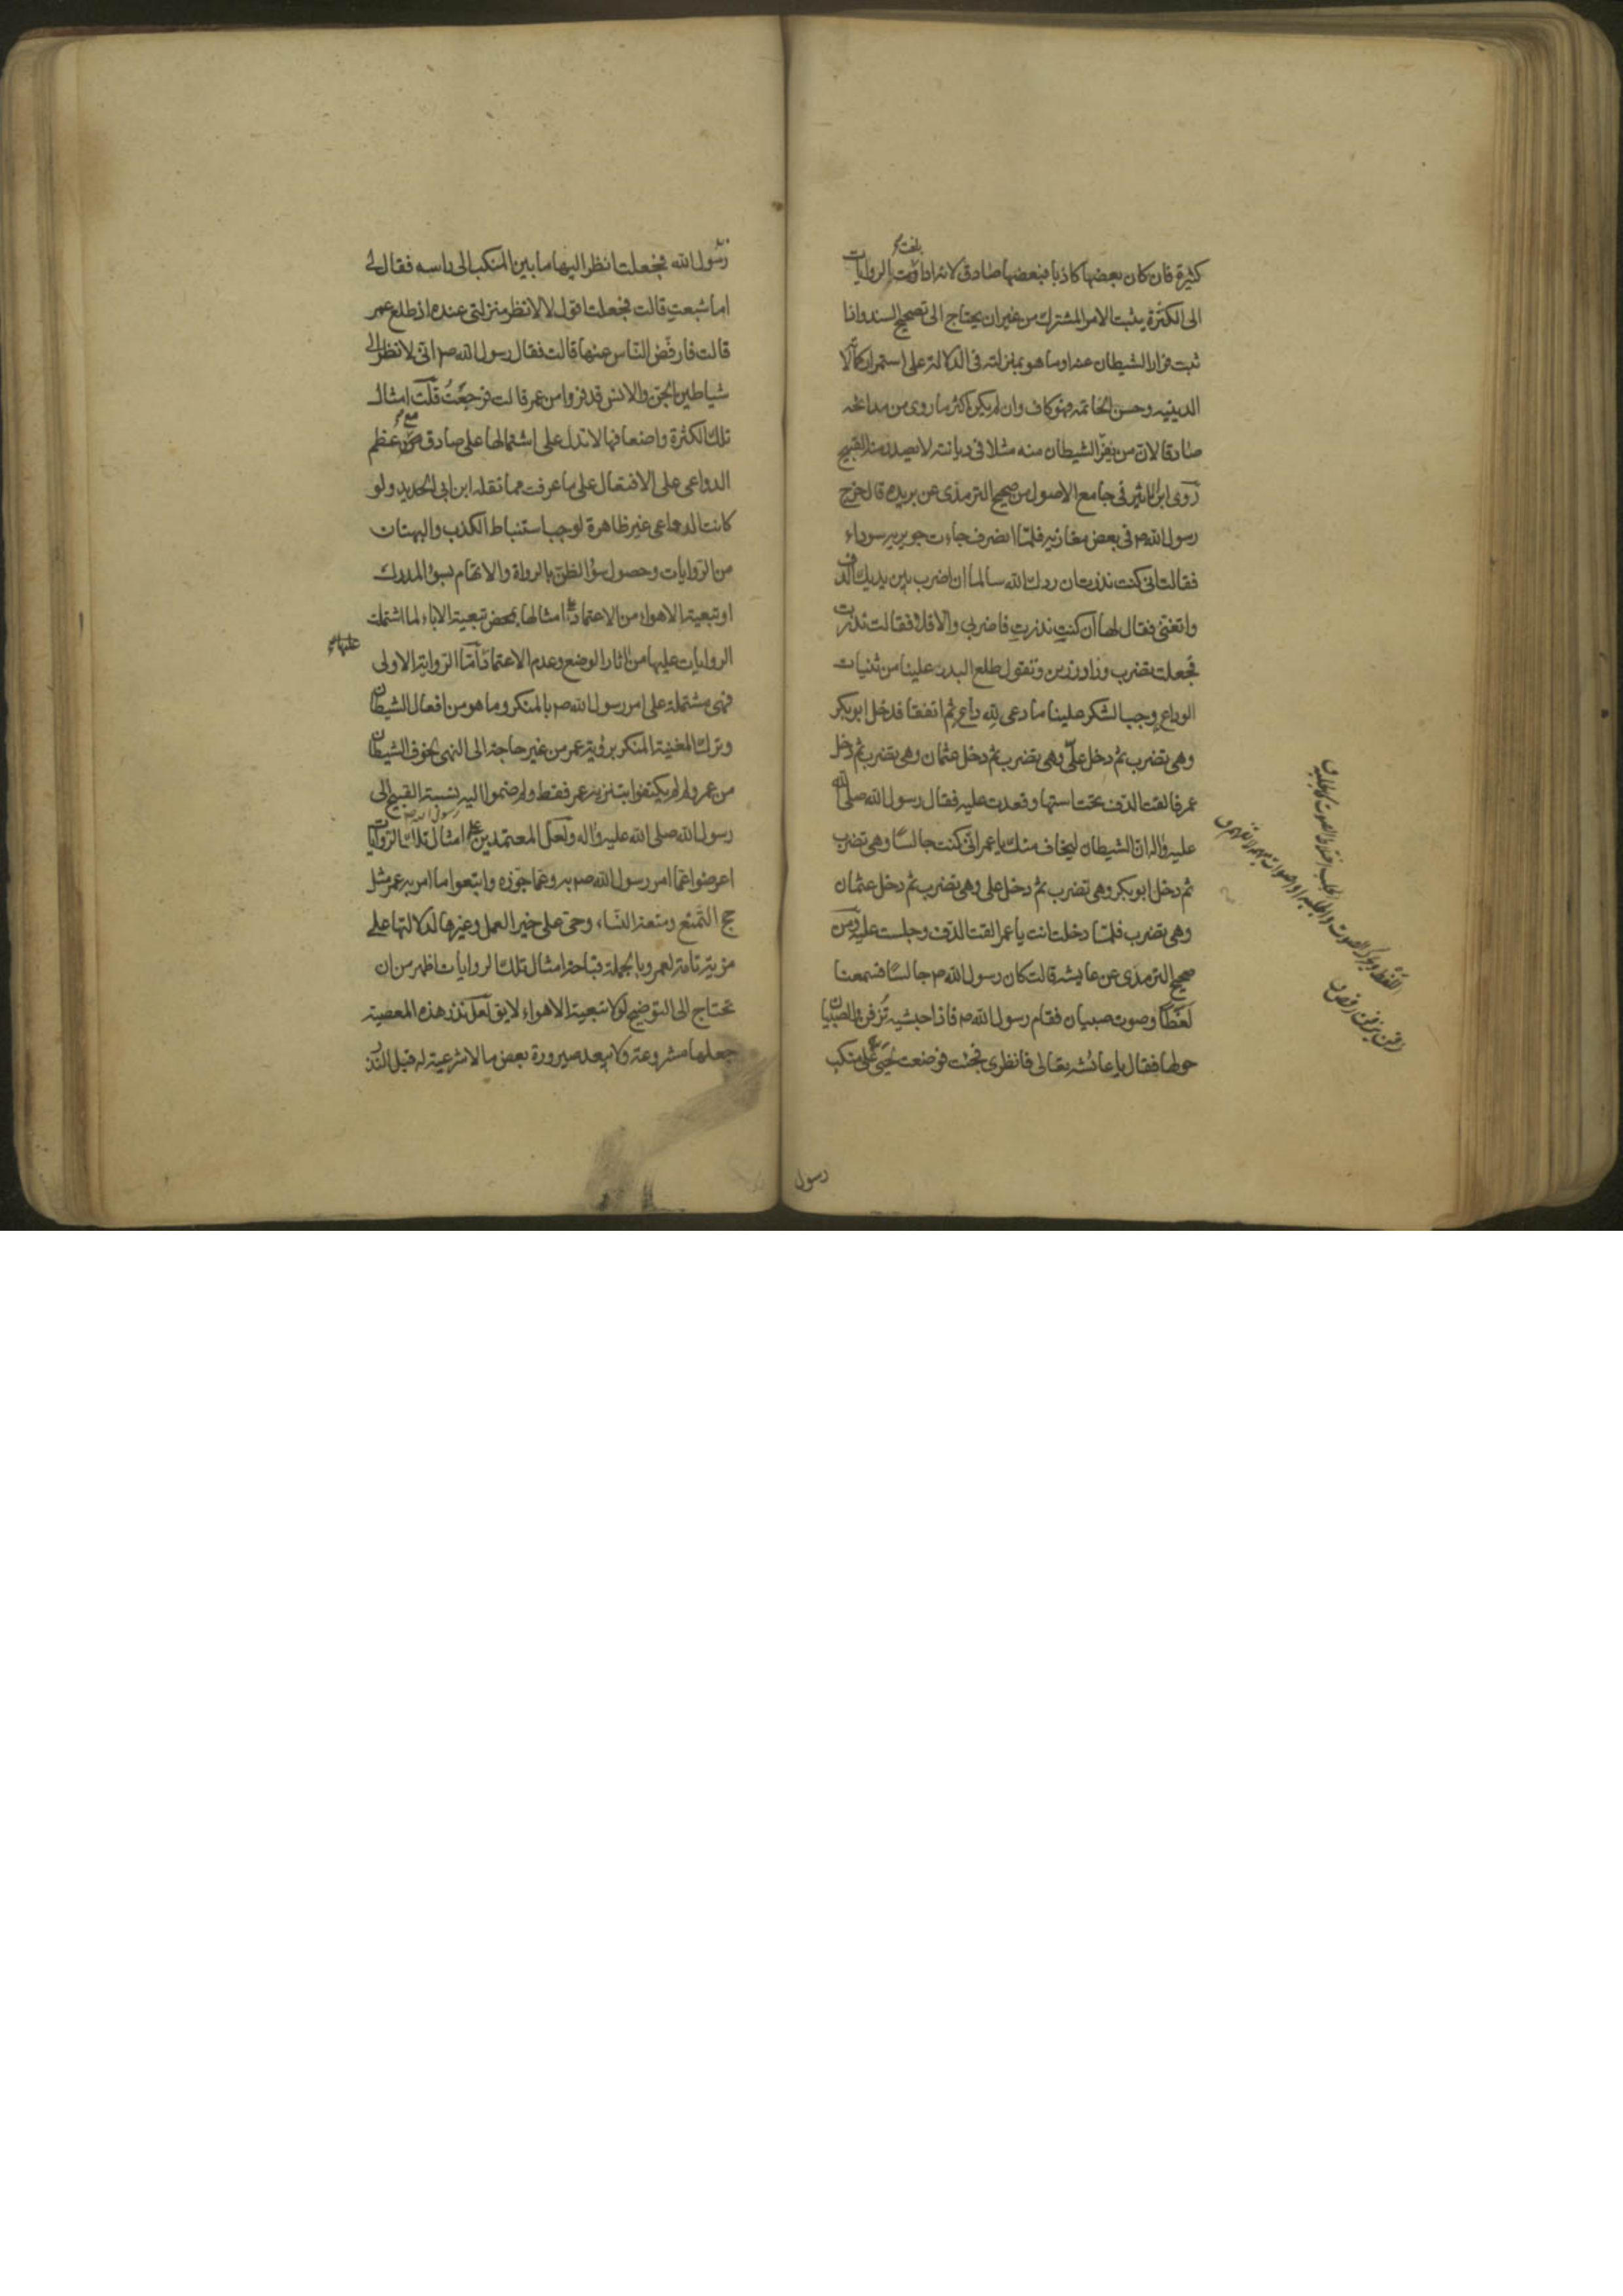 كثيرة فان كان بعضها كاذبا فبعضها صادق لانه اذا بلغت الروايات
الى الكثرة يثبت الامر المشترك من غير ان يحتاج الى تصحيح السند واذا
ثبت فرار الشيطان عنه او ما هو بمنزلته فى الدلالة على استمرار كماله
الدينيه وحسن الخاتمه فهو كاف وان لم يكن اكثر ما روى من مدايحه
صادقا لان من يفرّ الشيطان منه مثلا فى ديانته لا يصدر منه القبيح
روى ابن الاثير فى جامع الاصول من صحيح الترمذى عن بريده قال خرج
رسول الله ص فى بعض مغازيه فلمّا انصرف جاءت جويريه سوداء
فقالت انى كنت نذرت ان ردك الله سالما ان اضرب بين يديك الدف
واتغنى فقال لها ان كنتِ نذرتِ فاضربى والا فلا فقالت نذرت
فجعلت تضرب وزاد رزين وتقول طلع البدر علينا من ثنيات
الوداع وجب الشكر علينا ما دعى لله داعٍ ثم اتفقا فدخل ابو بكر
وهى تضرب ثم دخل علىّ وهى تضرب ثم دخل عثمان وهى تضرب ثم دخل
عمر فالقت الدف تحت استها وقعدت عليه فقال رسول الله صلى الله
عليه واله ان الشيطان ليخاف منك يا عمر انى كنت جالسًا وهى تضرب
ثم دخل ابو بكر وهى تضرب ثم دخل على وهى تضرب ثم دخل عثمان
وهى تضرب فلمّا دخلت انت يا عمر القت الدف وجلست عليه ومن
صحيح الترمذى عن عايشه قالت كان رسول الله ص جالسًا فسمعنا
لَغَطًا وصوت صبيان فقام رسول الله ص فاذا حبشيه تَزْفِن والصبيان
حولها فقال يا عائشه تعالى فانظرى فجئت فوضعت لحيى على منكب
رسول
رسول الله فجعلت انظر اليها ما بين المنكب الى راسه فقال لى
اما شبعتِ قالت فجعلت اقول لا لانظر منزلتى عنده اذ طلع عمر
قالت فارفضّ الناس عنها قالت فقال رسول الله ص انى لانظر الى
شياطين الجن والانس قد فروا من عمر قالت فرجعتُ قلت امثال
تلك الكثرة واضعافها لا تدل على اشتمالها على صادق مع عظم
الدواعى على الافتعال على ما عرفت مما نقله ابن ابى الحديد ولو
كانت الدواعى غير ظاهرة لوجب استنباط الكذب والبهتان
من الروايات وحصول سوء الظن بالرواة والاتهام بسوء المدرك
او تبعية الاهواء من الاعتماد على امثالها بمحض تبعية الاباء لما اشتملت
الروايات عليها من اثار الوضع وعدم الاعتماد امّا الرواية الاولى
فهى مشتملة على امر رسول الله ص بالمنكر وما هو من افعال الشيطان
وترك المغنية المنكر برؤية عمر من غير حاجة الى النهى لخوف الشيطان
من عمر ولم يكتفوا بتنزيه عمر فقط ولم ضموا اليه نسبة القبيح الى
رسول الله صلى الله عليه واله ولعل المعتمدين على امثال تلك الروايات
اعرضوا عما امر رسول الله ص به وعما جوّزه واتبعوا ما امر به عمر مثل
حج التمتع ومتعة النساء وحى على خير العمل وغيرها لدلالتها على
مزية تامة لعمر وبالجملة قباحة امثال تلك الروايات اظهر من ان
تحتاج الى التوضيح لولا تبعية الاهواء لا يق لعل نذر هذه المعصية
جعلها مشروعة ولا يبعد صيرورة بعض ما لا شرعية له قبل النذر